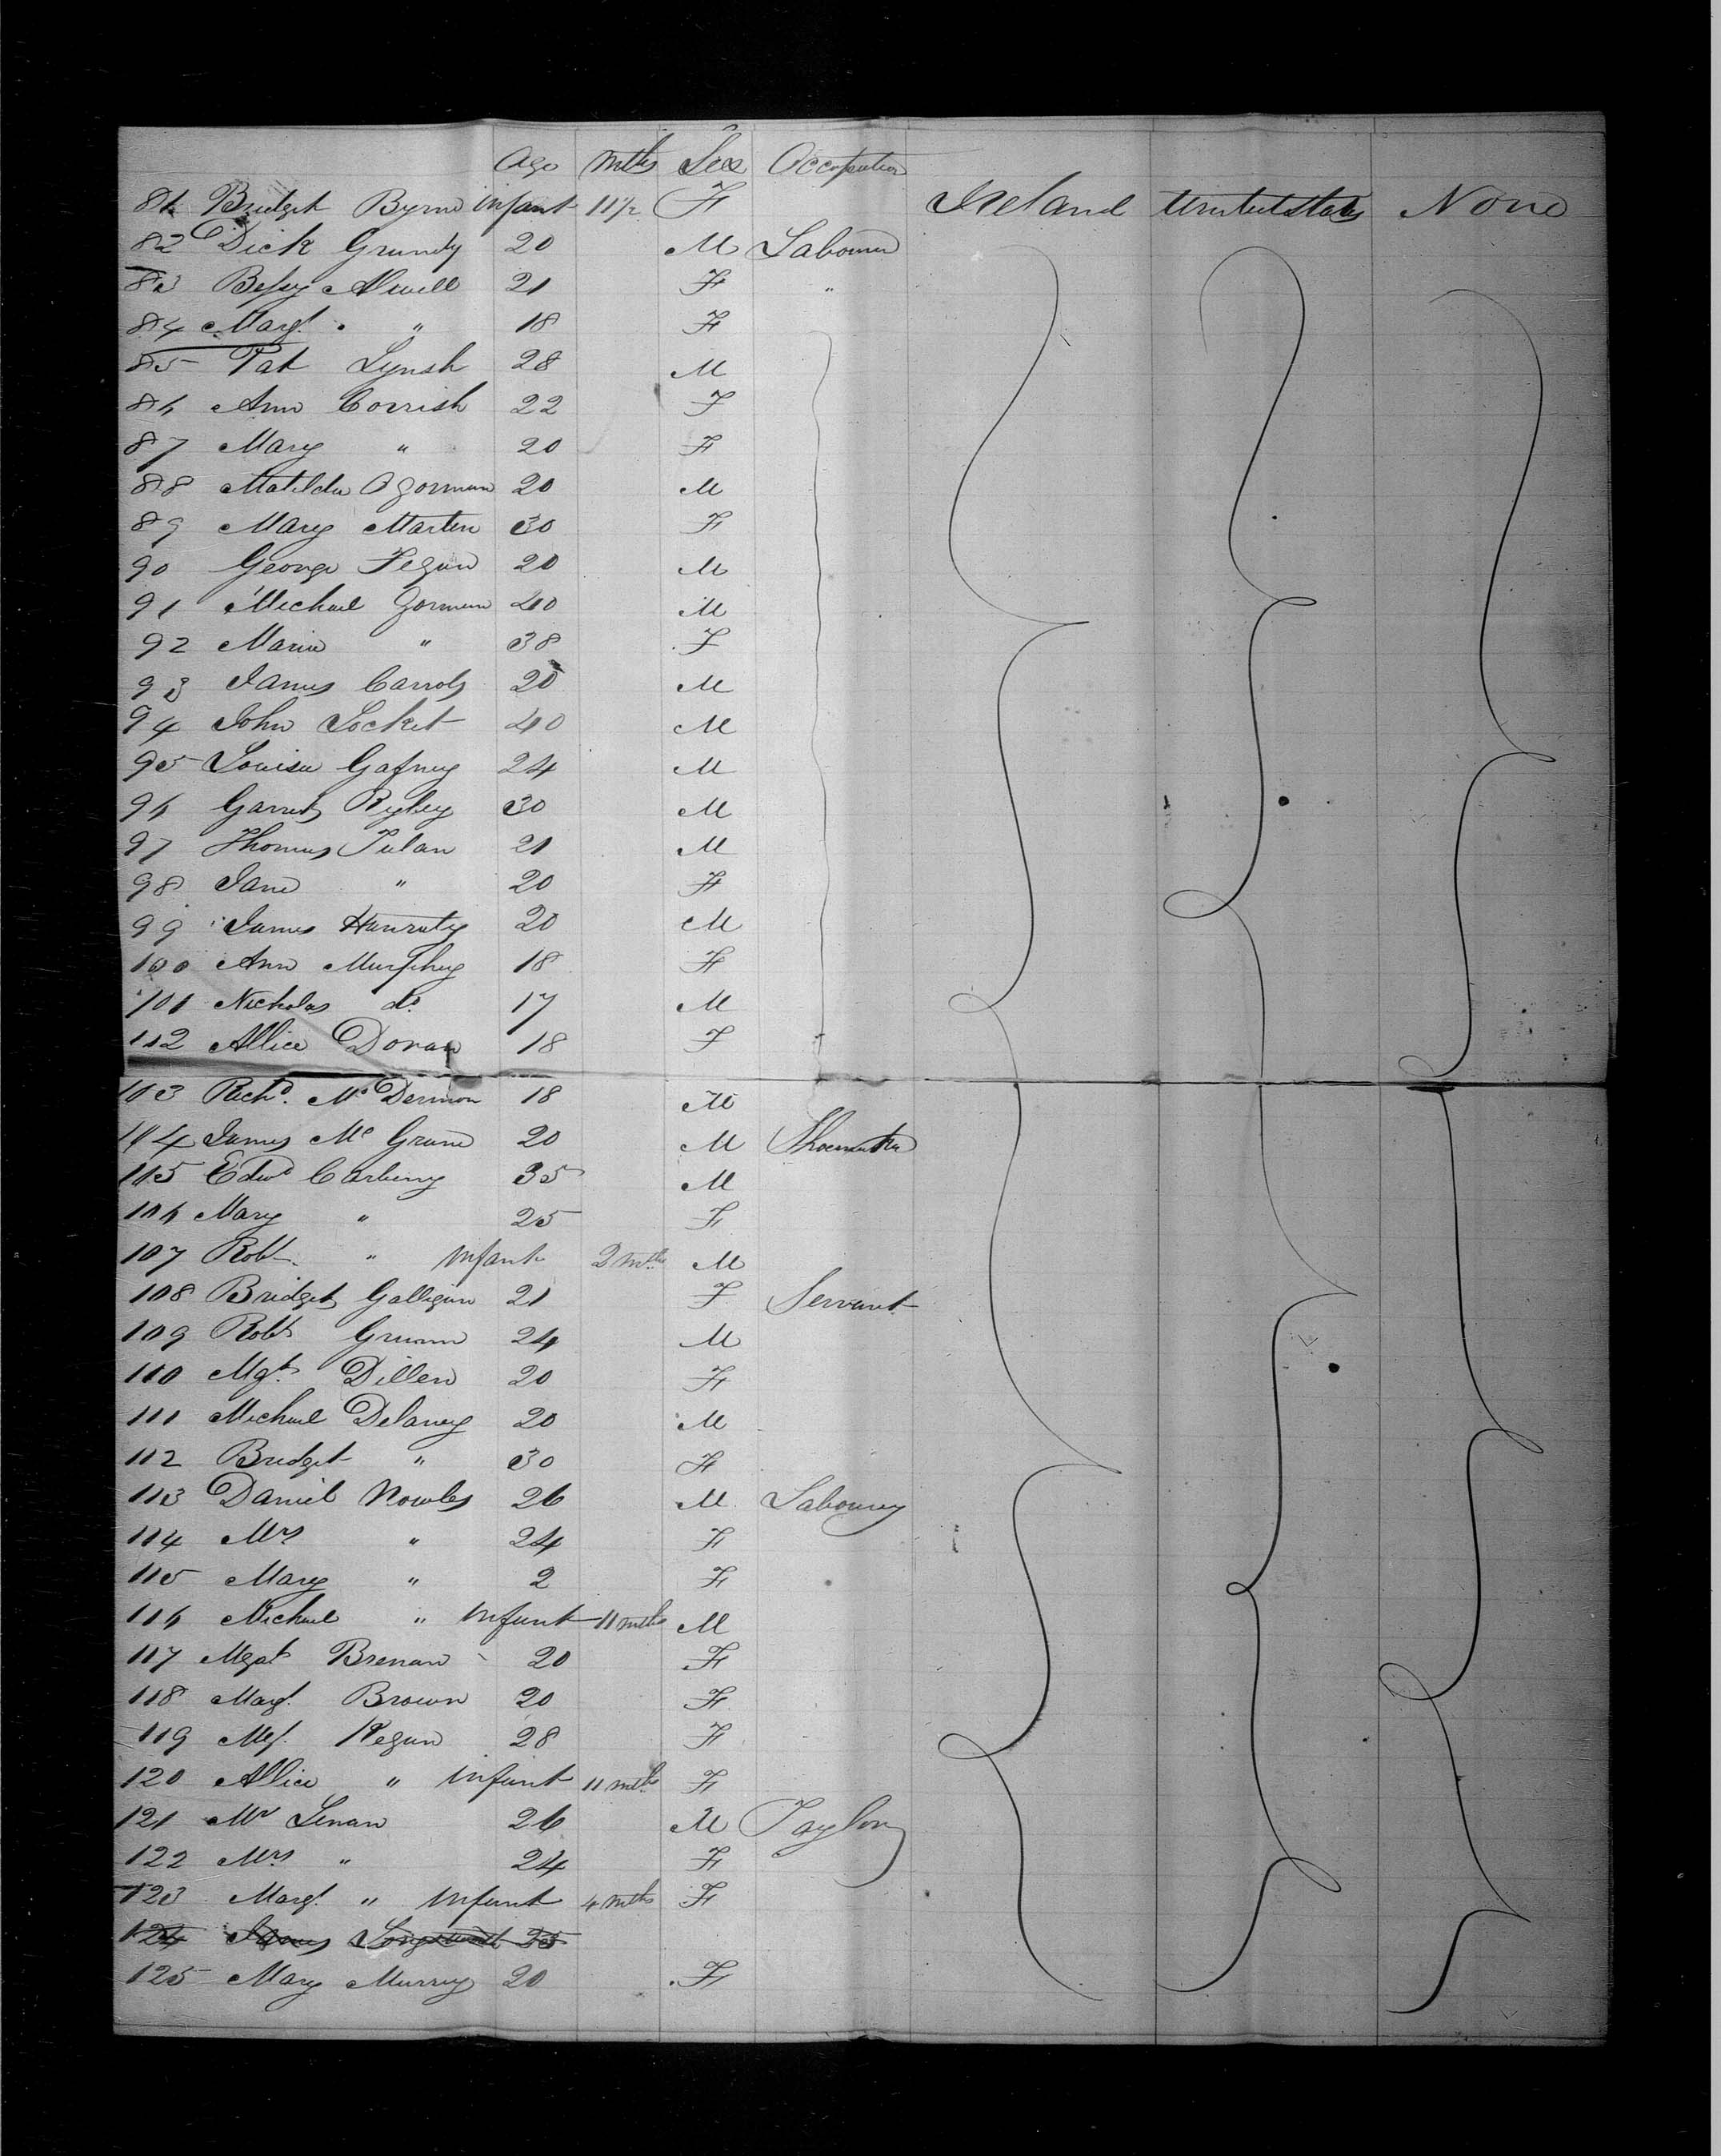 Age mths Sex Occupation
81 Bridget Byrne infant 11½ F Ireland United States None
82 Dick Grundy 20 M Labourer
83 Bessy Alwell 21 F "
84 Margt. " 18 F
85 Pat Lynsh 28 M
86 Ann Corrish 22 F
87 Mary " 20 F
88 Matilda O Gorman 20 M
89 Mary Marten 30 F
90 George Fegan 20 M
91 Michael Gorman 40 M
92 Maria " 38 F
93 James Carrol 20 M
94 John Locket 40 M
95 Louisa Gafney 24 M
96 Garret 30 M
97 Thomas Tulan 21 M
98 Jane " 20 F
99 James Hanraty 20 M
100 Ann Murphey 18 F
101 Nicholas do. 17 M
102 Allice Doran 18 F
103 Richd. Mc Dermon 18 M
104 James Mc Grane 20 M Shoemaker
105 Edwd Carberry 35 M
106 Mary " 25 F
107 Robt. " infant 2 mths M
108 Bridget Galligan 21 F Servant
109 Robt 24 M
110 Mgt. Dillen 20 F
111 Michael Delaney 20 M
112 Bridget " 30 F
113 Daniel Nowles 26 M Labourer
114 Mrs " 24 F
115 Mary " 2 F
116 Michael " infant 11 mths M
117 Mgat Brenan 20 F
118 Margt. Brown 20 F
119 Mgt. Regan 28 F
120 Allice " infant 11 mths F
121 Mr Lenan 26 M Taylor
122 Mrs " 24 F
123 Margt. " infant 4 mths F
124 James 25
125 Mary Murrey 20 F